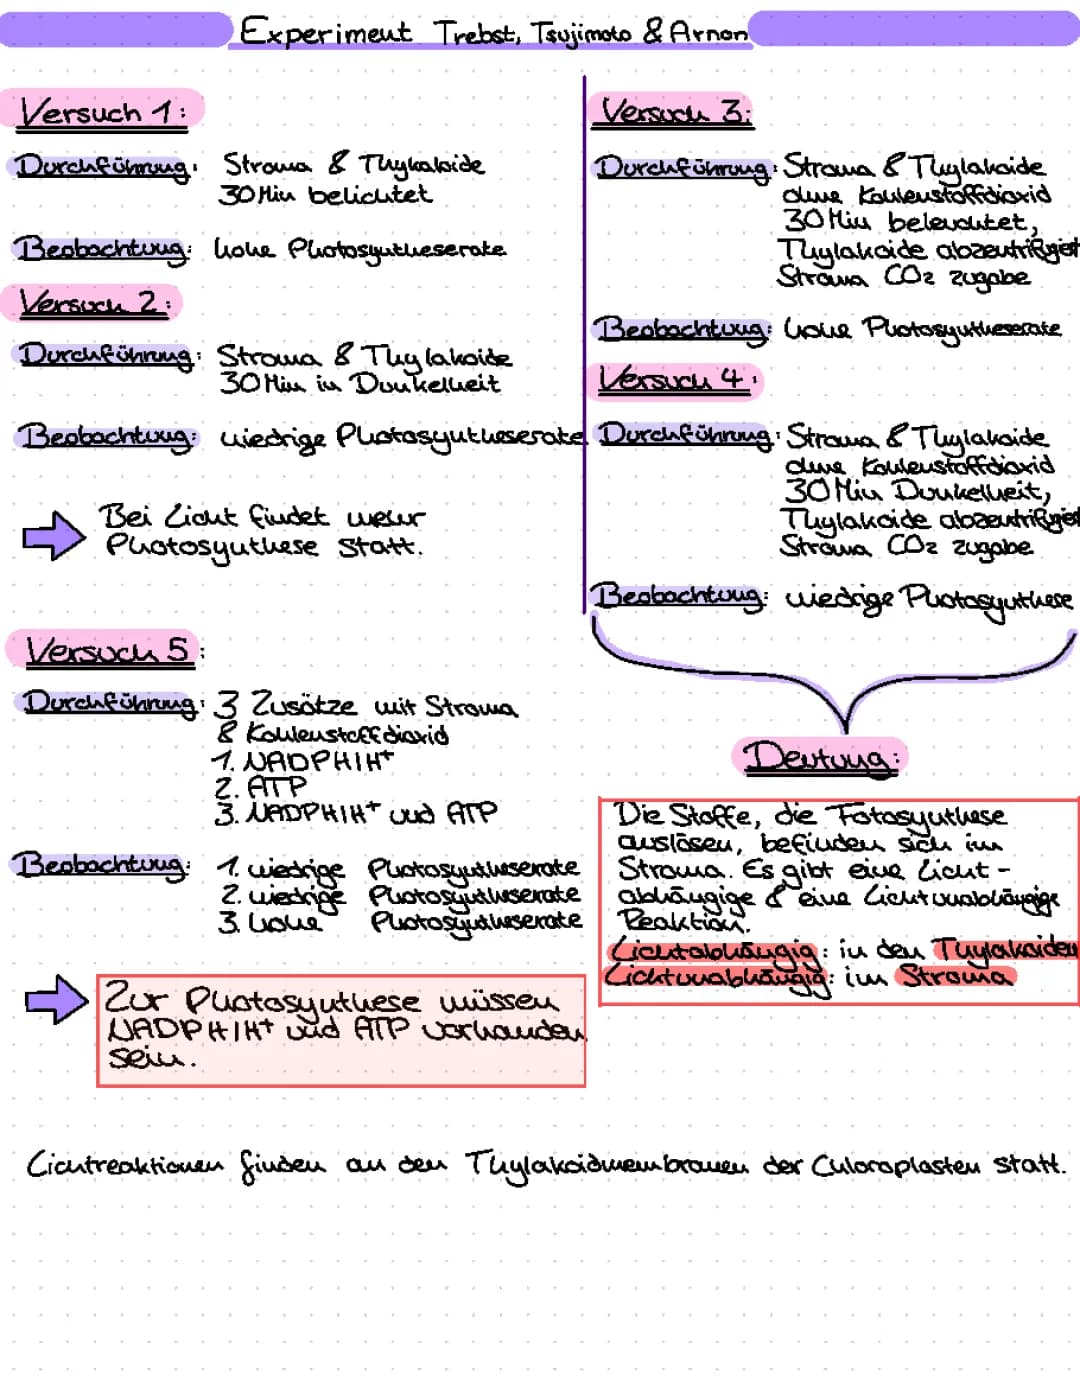 Experiment Trebst, Tsujimoto & Arnon
Versuch 1:
Durchführung: Stroma & Thykaloide
30 Min belichtet
Beobachtung: hohe Photosyntheserate
Versuch 2:
Durchführung: Stroma & Thylakoide
30 Min in Dunkelheit
Beobachtung: niedrige Photosyntheserate
Bei Licht findet mehr
Photosynthese statt.
Versuch 3:
Durchführung: Stroma & Thylakoide
ohne Kohlenstoffdioxid
30 Min beleuchtet,
Thylakoide abzentrifugiert
Stroma CO2 zugabe
Beobachtung: hohe Photosyntheserate
Versuch 4:
Durchführung: Stroma & Thylakoide
ohne Kohlenstoffdioxid
30 Min Dunkelheit,
Thylakoide abzentrifugiert
Stroma CO2 zugabe
Beobachtung: niedrige Photosynthese
Versuch 5:
Durchführung: 3 Zusätze mit Stroma
& Kohlenstoffdioxid
1. NADPHIH+
2. ATP
3. NADPHIH+ und ATP
Beobachtung: 1. niedrige Photosyntheserate
2. niedrige Photosyntheserate
3. hohe Photosyntheserate
Zur Photosynthese müssen
NADPHIH+ und ATP vorhanden
sein.
Deutung:
Die Stoffe, die Fotosynthese
auslösen, befinden sich im
Stroma. Es gibt eine Licht-
abhängige & eine Lichtunabhängige
Reaktion.
Lichtabhängig: in den Thylakoiden
Lichtunabhängig: im Stroma
Lichtreaktionen finden an den Thylakoidmembranen der Chloroplasten statt.